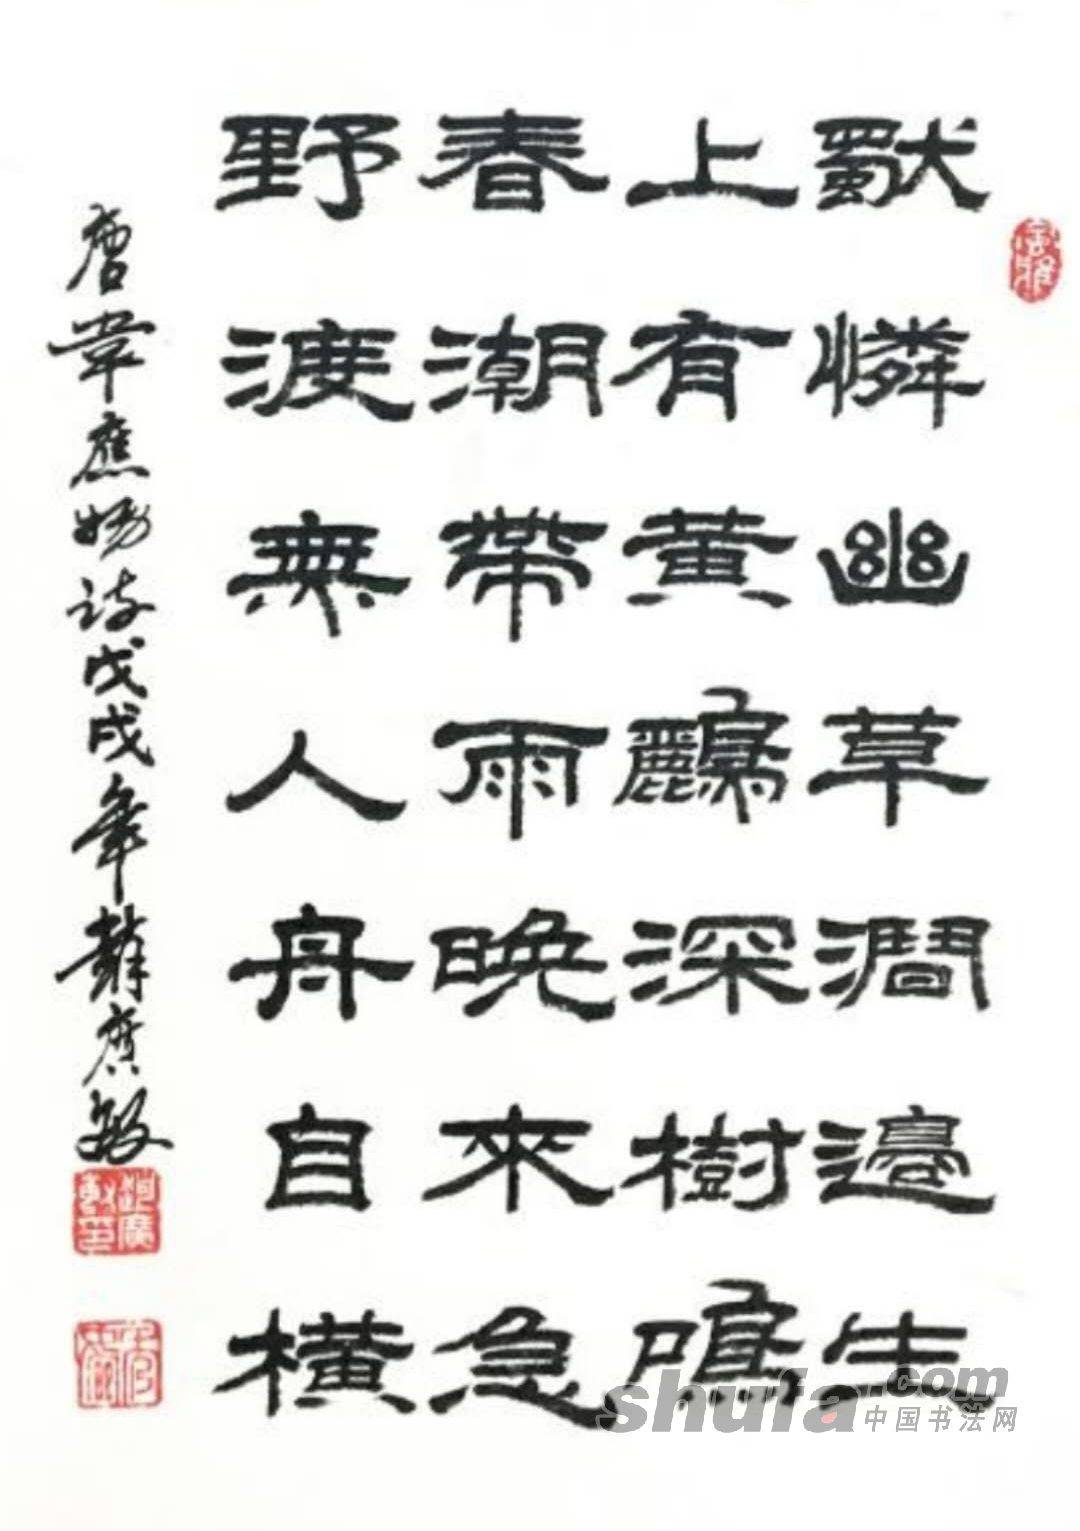 獨憐幽草澗邊生
上有黃鸝深樹鳴
春潮帶雨晚來急
野渡無人舟自橫
唐韋應物詩戊戌年廣敏
shufa.com
中国书法网